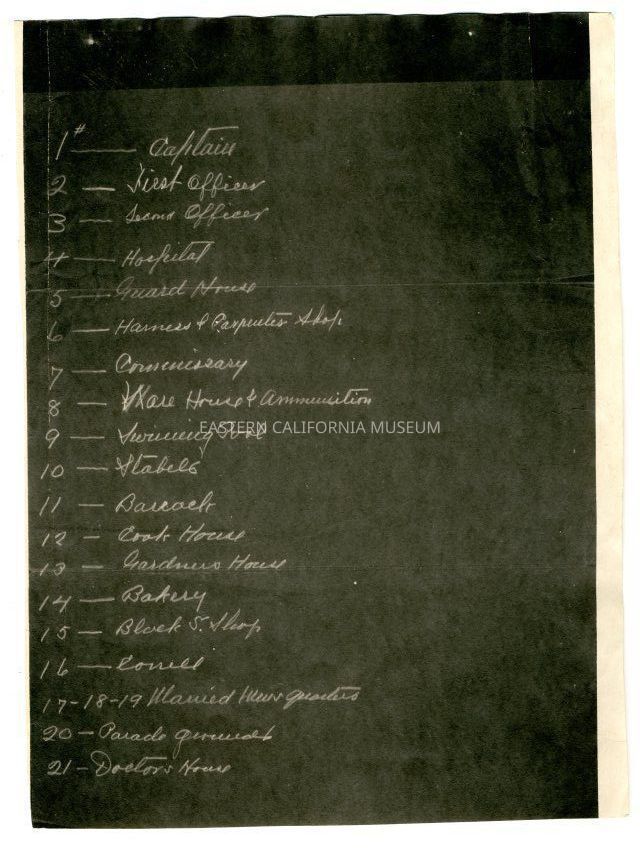 1# — Captain
2 — First Officer
3 — Second Officer
4 — Hospital
5 — Guard House
6 — Harness & Carpenter Shop
7 — Commissary
8 — Ware House & Ammunition
9 — Swiming Pool
EASTERN CALIFORNIA MUSEUM
10 — Stabels
11 — Barrack
12 — Cook House
13 — Gardners House
14 — Bakery
15 — Black S. Shop
16 — Correll
17-18-19 Married Mens quarters
20 — Parade grounds
21 — Doctors House